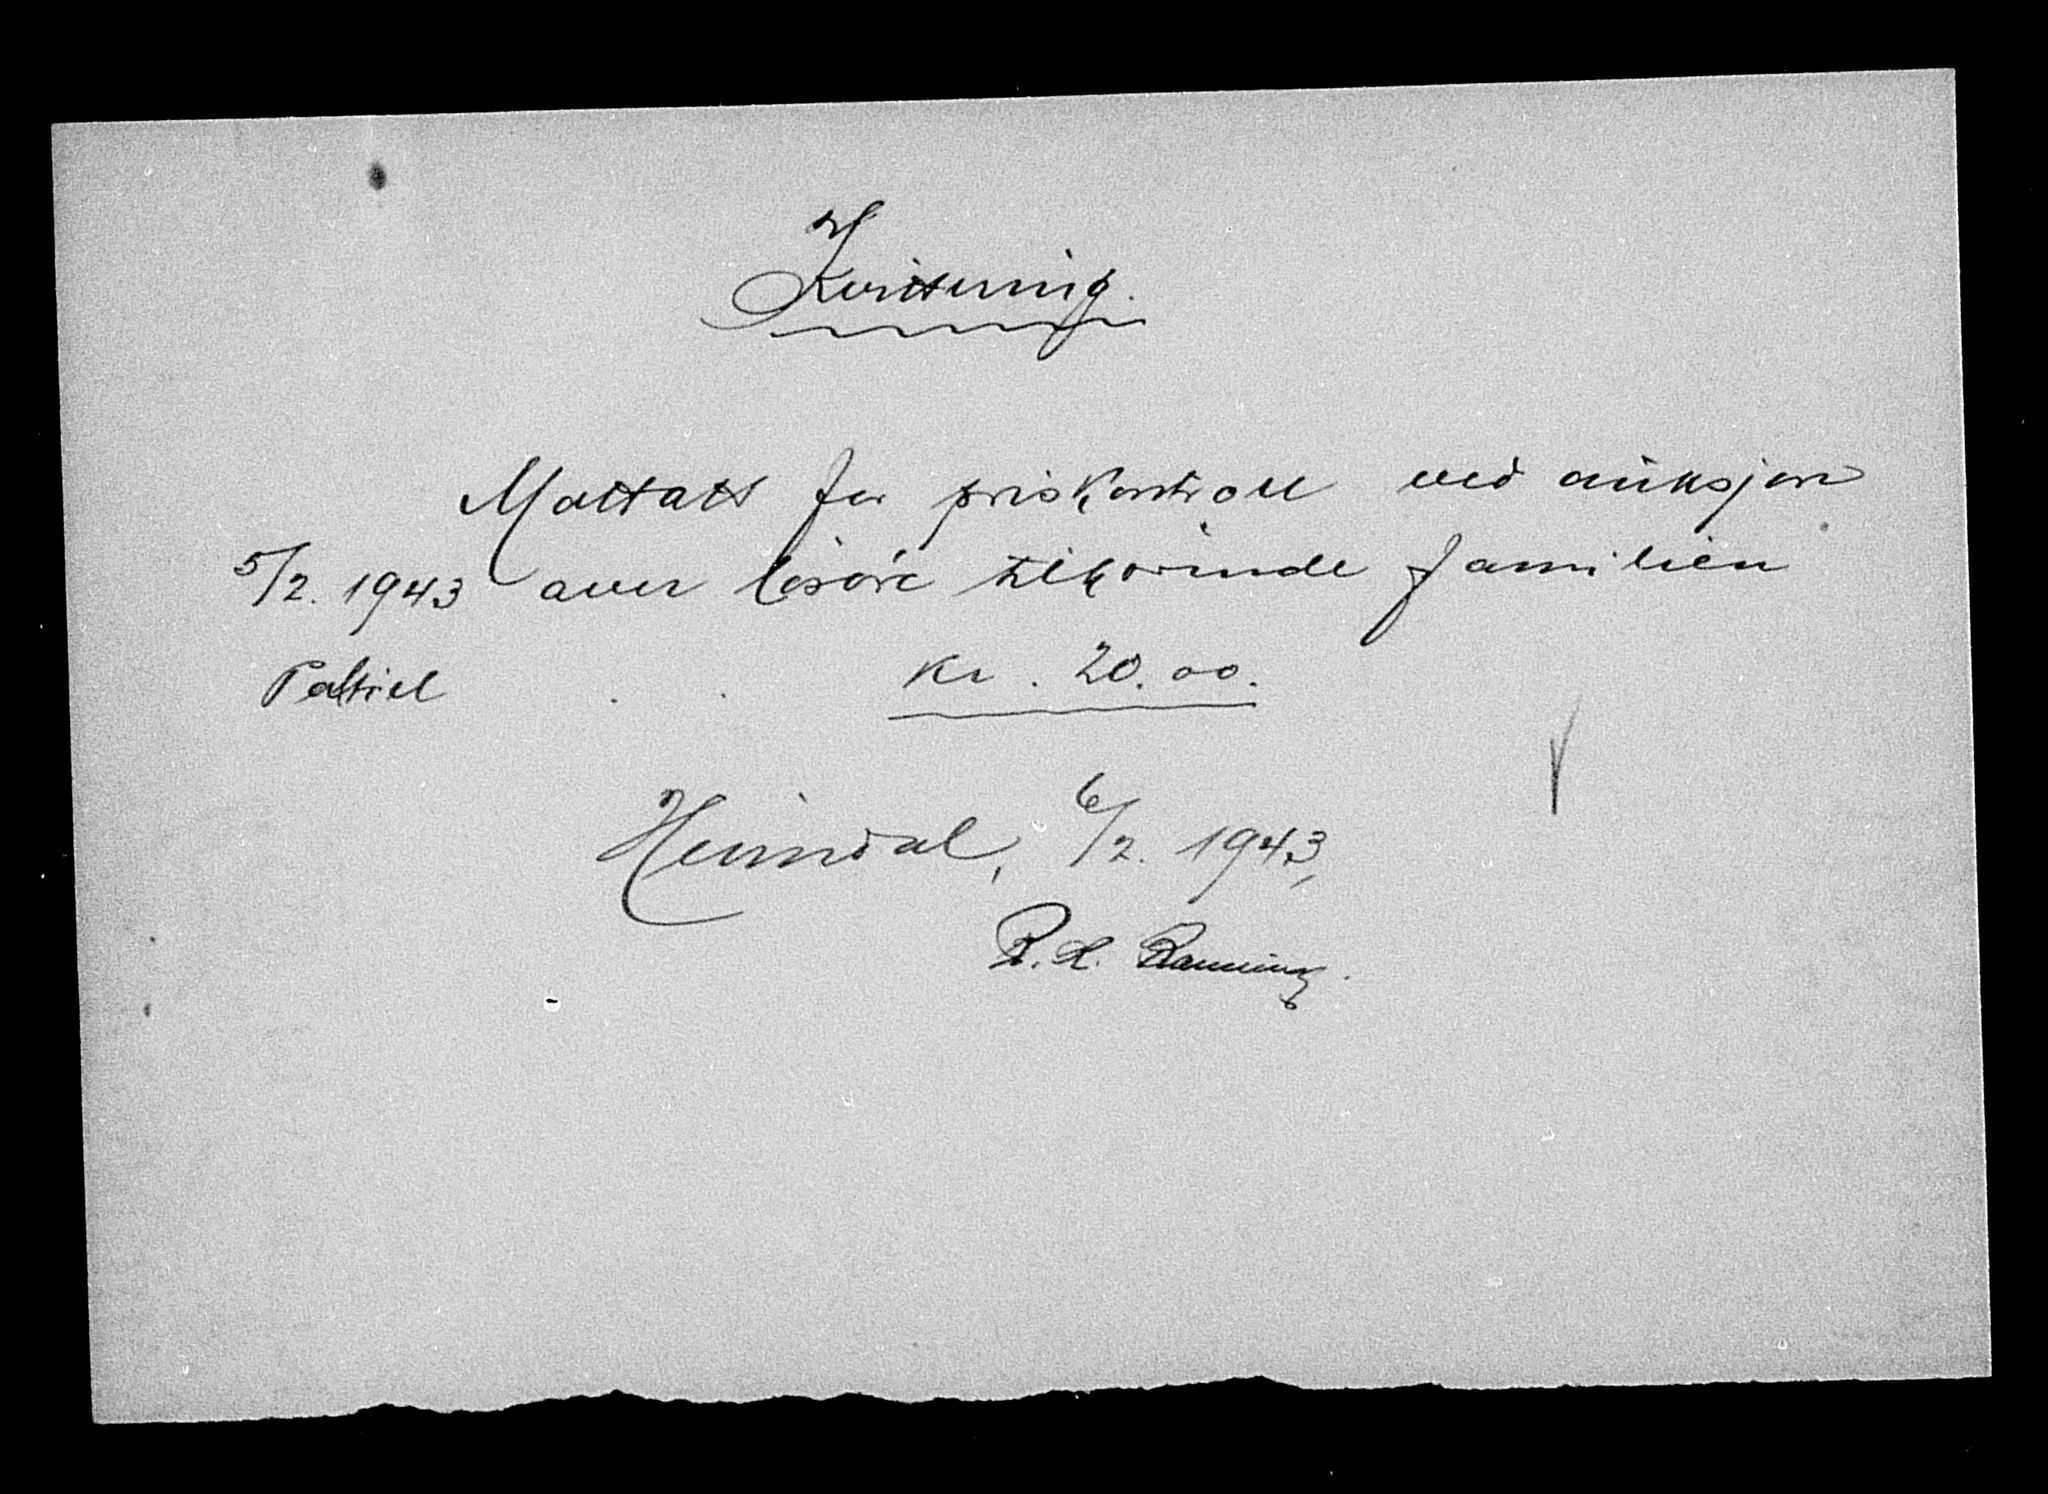 Kvittering.
Mottatt for priskontroll ved auksjon
5/2. 1943 over løsøre tilhørende familien
Paltiel kr. 20.00.
Heimdal, 6/2. 1943,
R. L. Rønning.